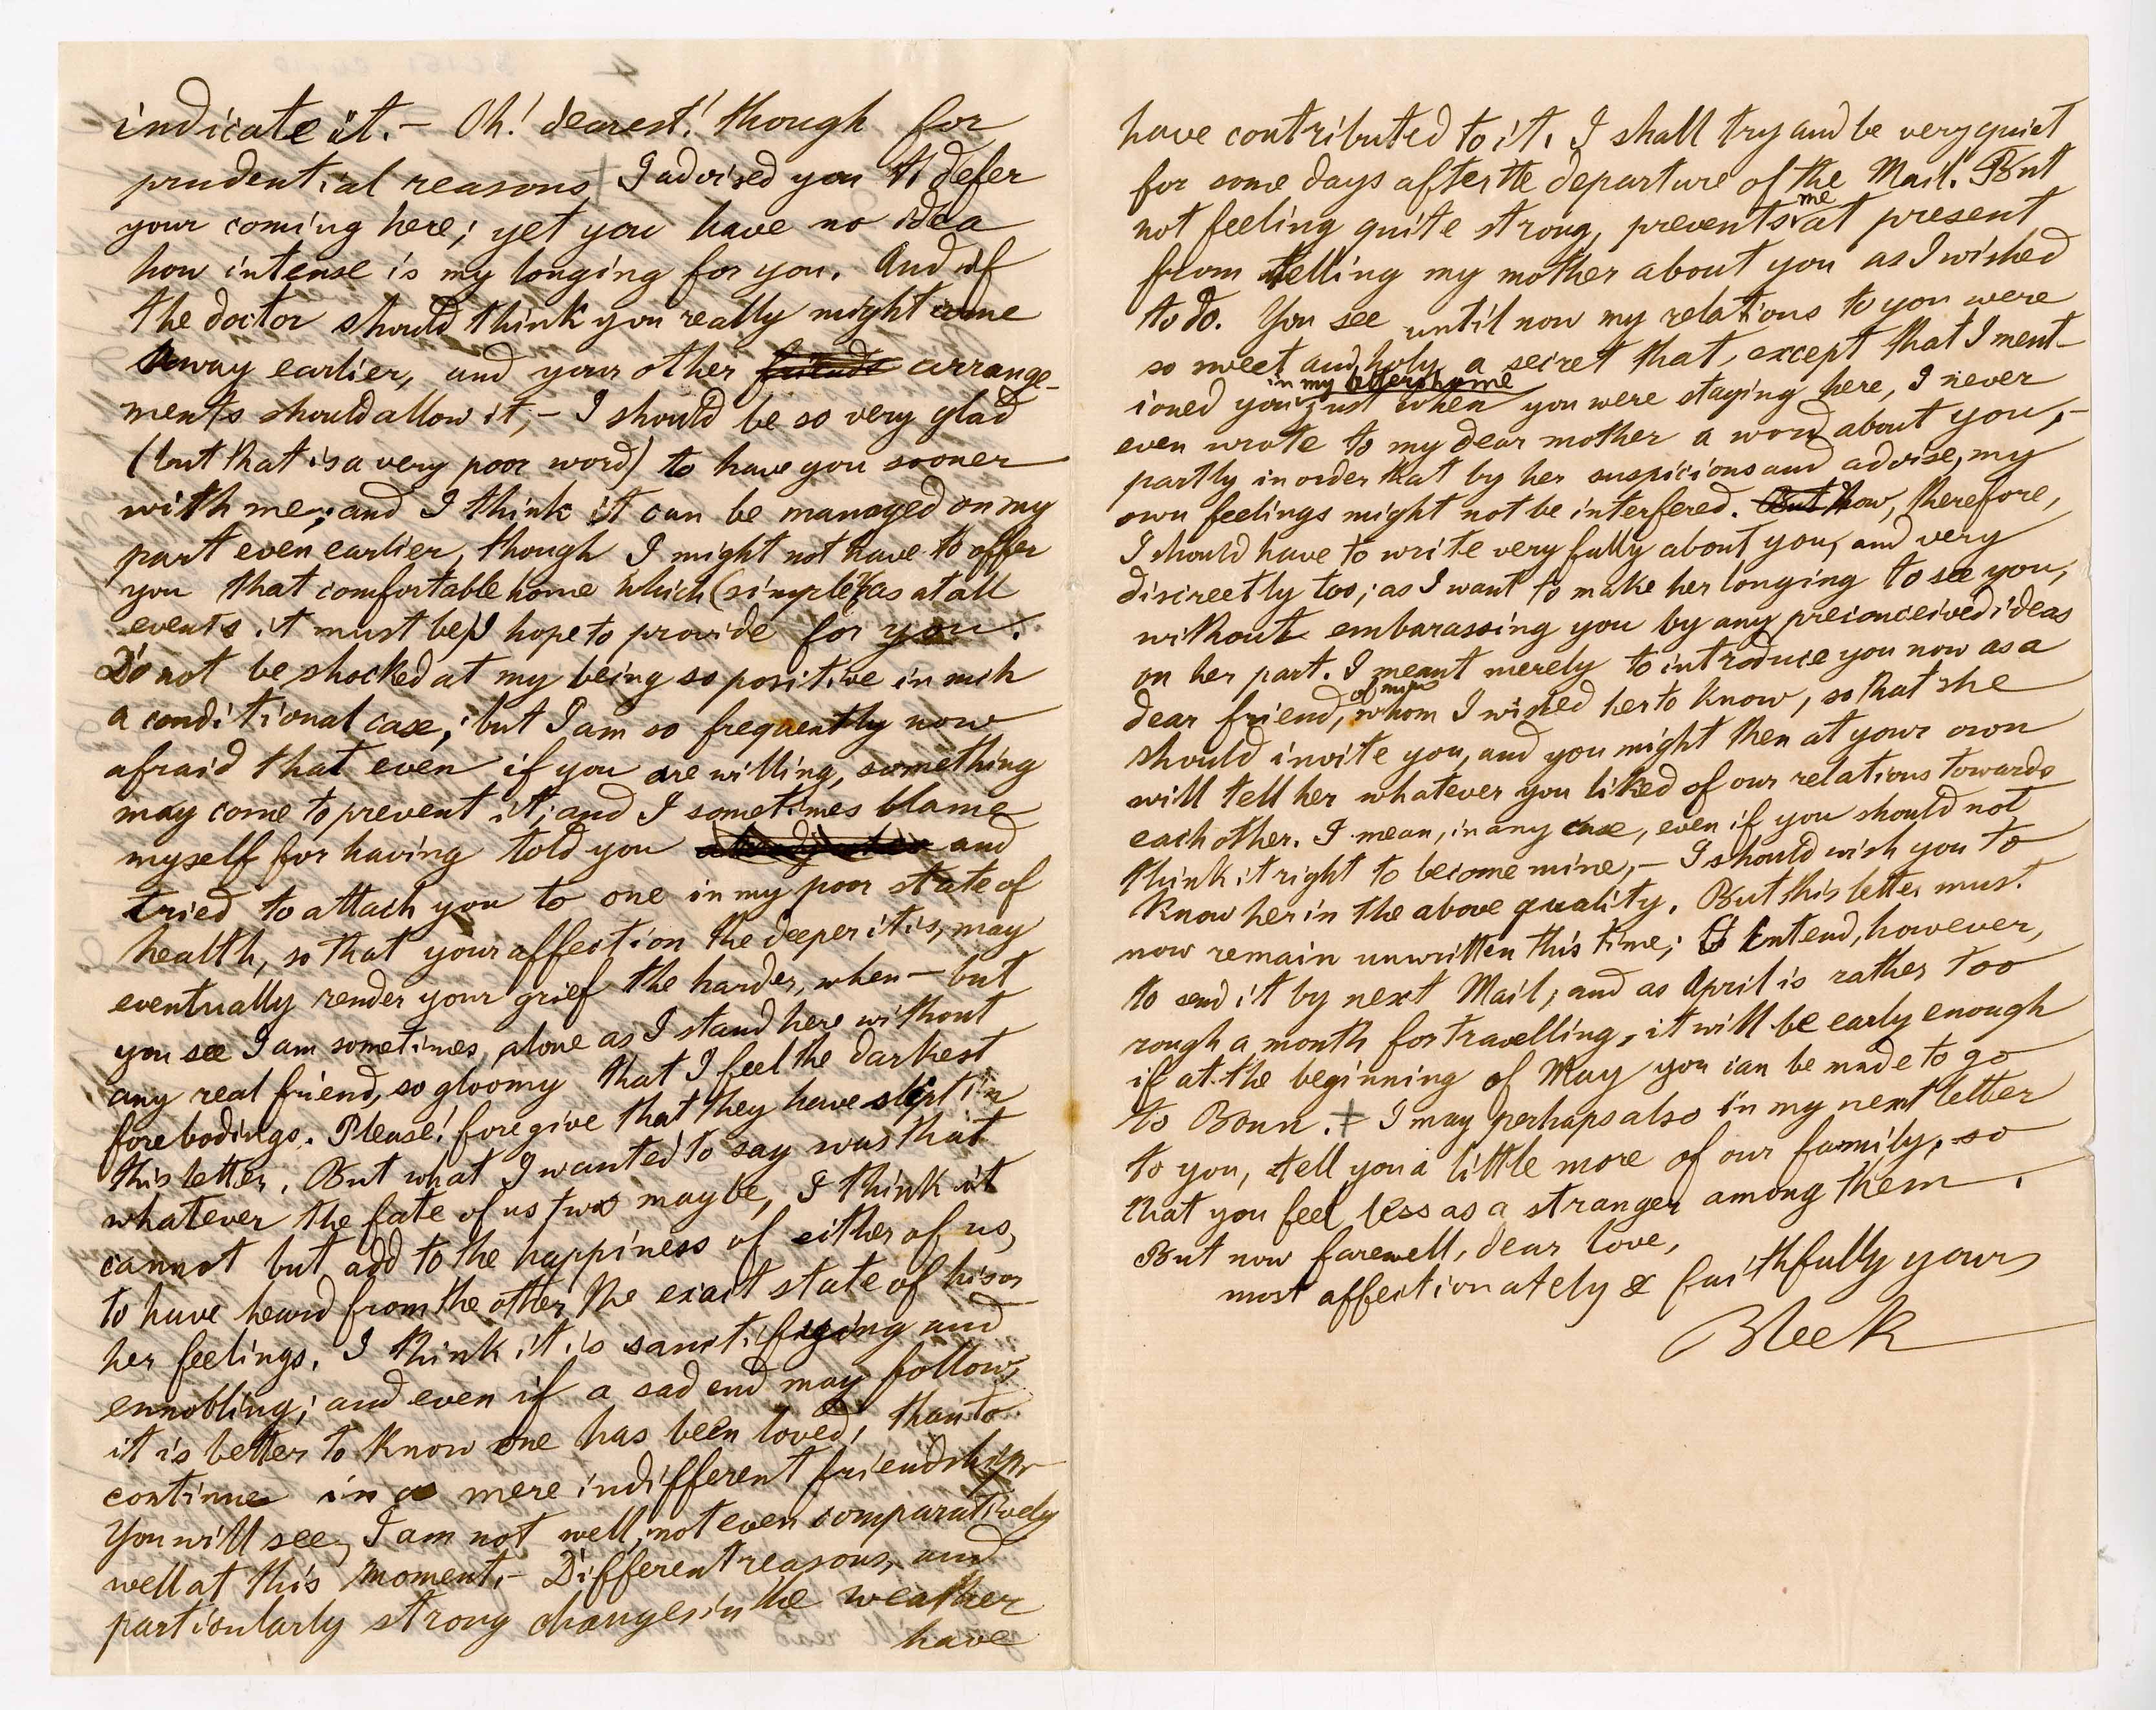 indicate it. – Oh! dearest! though for
prudential reasons I advised you to defer
your coming here; yet you have no idea
how intense is my longing for you. And if
the doctor should think you really might come
away earlier, and your other friends arrange-
ments should allow it, – I should be so very glad
(but that is a very poor word) to have you sooner
with me; and I think it can be managed on my
part even earlier, though I might not have to offer
you that comfortable home which (simple as at all
events it must be) I hope to provide for you.
Do not be shocked at my being so positive in such
a conditional case; but I am so frequently now
afraid that even if you are willing, something
may come to prevent it; and I sometimes blame
myself for having told you and
tried to attach you to one in my poor state of
health, so that your affection the deeper it is, may
eventually render your grief the harder, when – but
you see I am sometimes, alone as I stand here without
any real friend, so gloomy that I feel the darkest
forebodings. Please! foregive that they have slipt in
this letter. But what I wanted to say was that
whatever the fate of us two may be, I think it
cannot but add to the happiness of either of us,
to have heard from the other the exact state of his or
her feelings. I think it is sanctifying and
ennobling; and even if a sad end may follow,
it is better to know one has been loved, than to
continue in a mere indifferent friendship.
You will see, I am not well, not even comparatively
well at this moment. – Different reasons, and
particularly strong changes in the weather
have
have contributed to it. I shall try and be very quiet
for some days after the departure of the Mail. But
not feeling quite strong, prevents me at present
from telling my mother about you as I wished
to do. You see until now my relations to you were
so sweet and holy a secret that, except that I ment-
ioned you in my letters home just when you were staying here, I never
even wrote to my dear mother a word about you, –
partly in order that by her suspicions and advise, my
own feelings might not be interfered. But now, therefore,
I should have to write very fully about you, and very
discreetly too; as I want to make her longing to see you,
without embarassing you by any preconceived ideas
on her part. I meant merely to introduce you now as a
dear friend, of mine whom I wished her to know, so that she
should invite you, and you might then at your own
will tell her whatever you liked of our relations towards
each other. I mean, in any case, even if you should not
think it right to become mine, – I should wish you to
know her in the above quality. But this letter must
now remain unwritten this time; I intend, however,
to send it by next Mail; and as April is rather too
rough a month for travelling, it will be early enough
if at the beginning of May you can be made to go
to Bonn. + I may perhaps also in my next letter
to you, tell you a little more of our family, so
that you feel less as a stranger among them.
But now farewell, dear love,
most affectionately & faithfully yours
Bleek